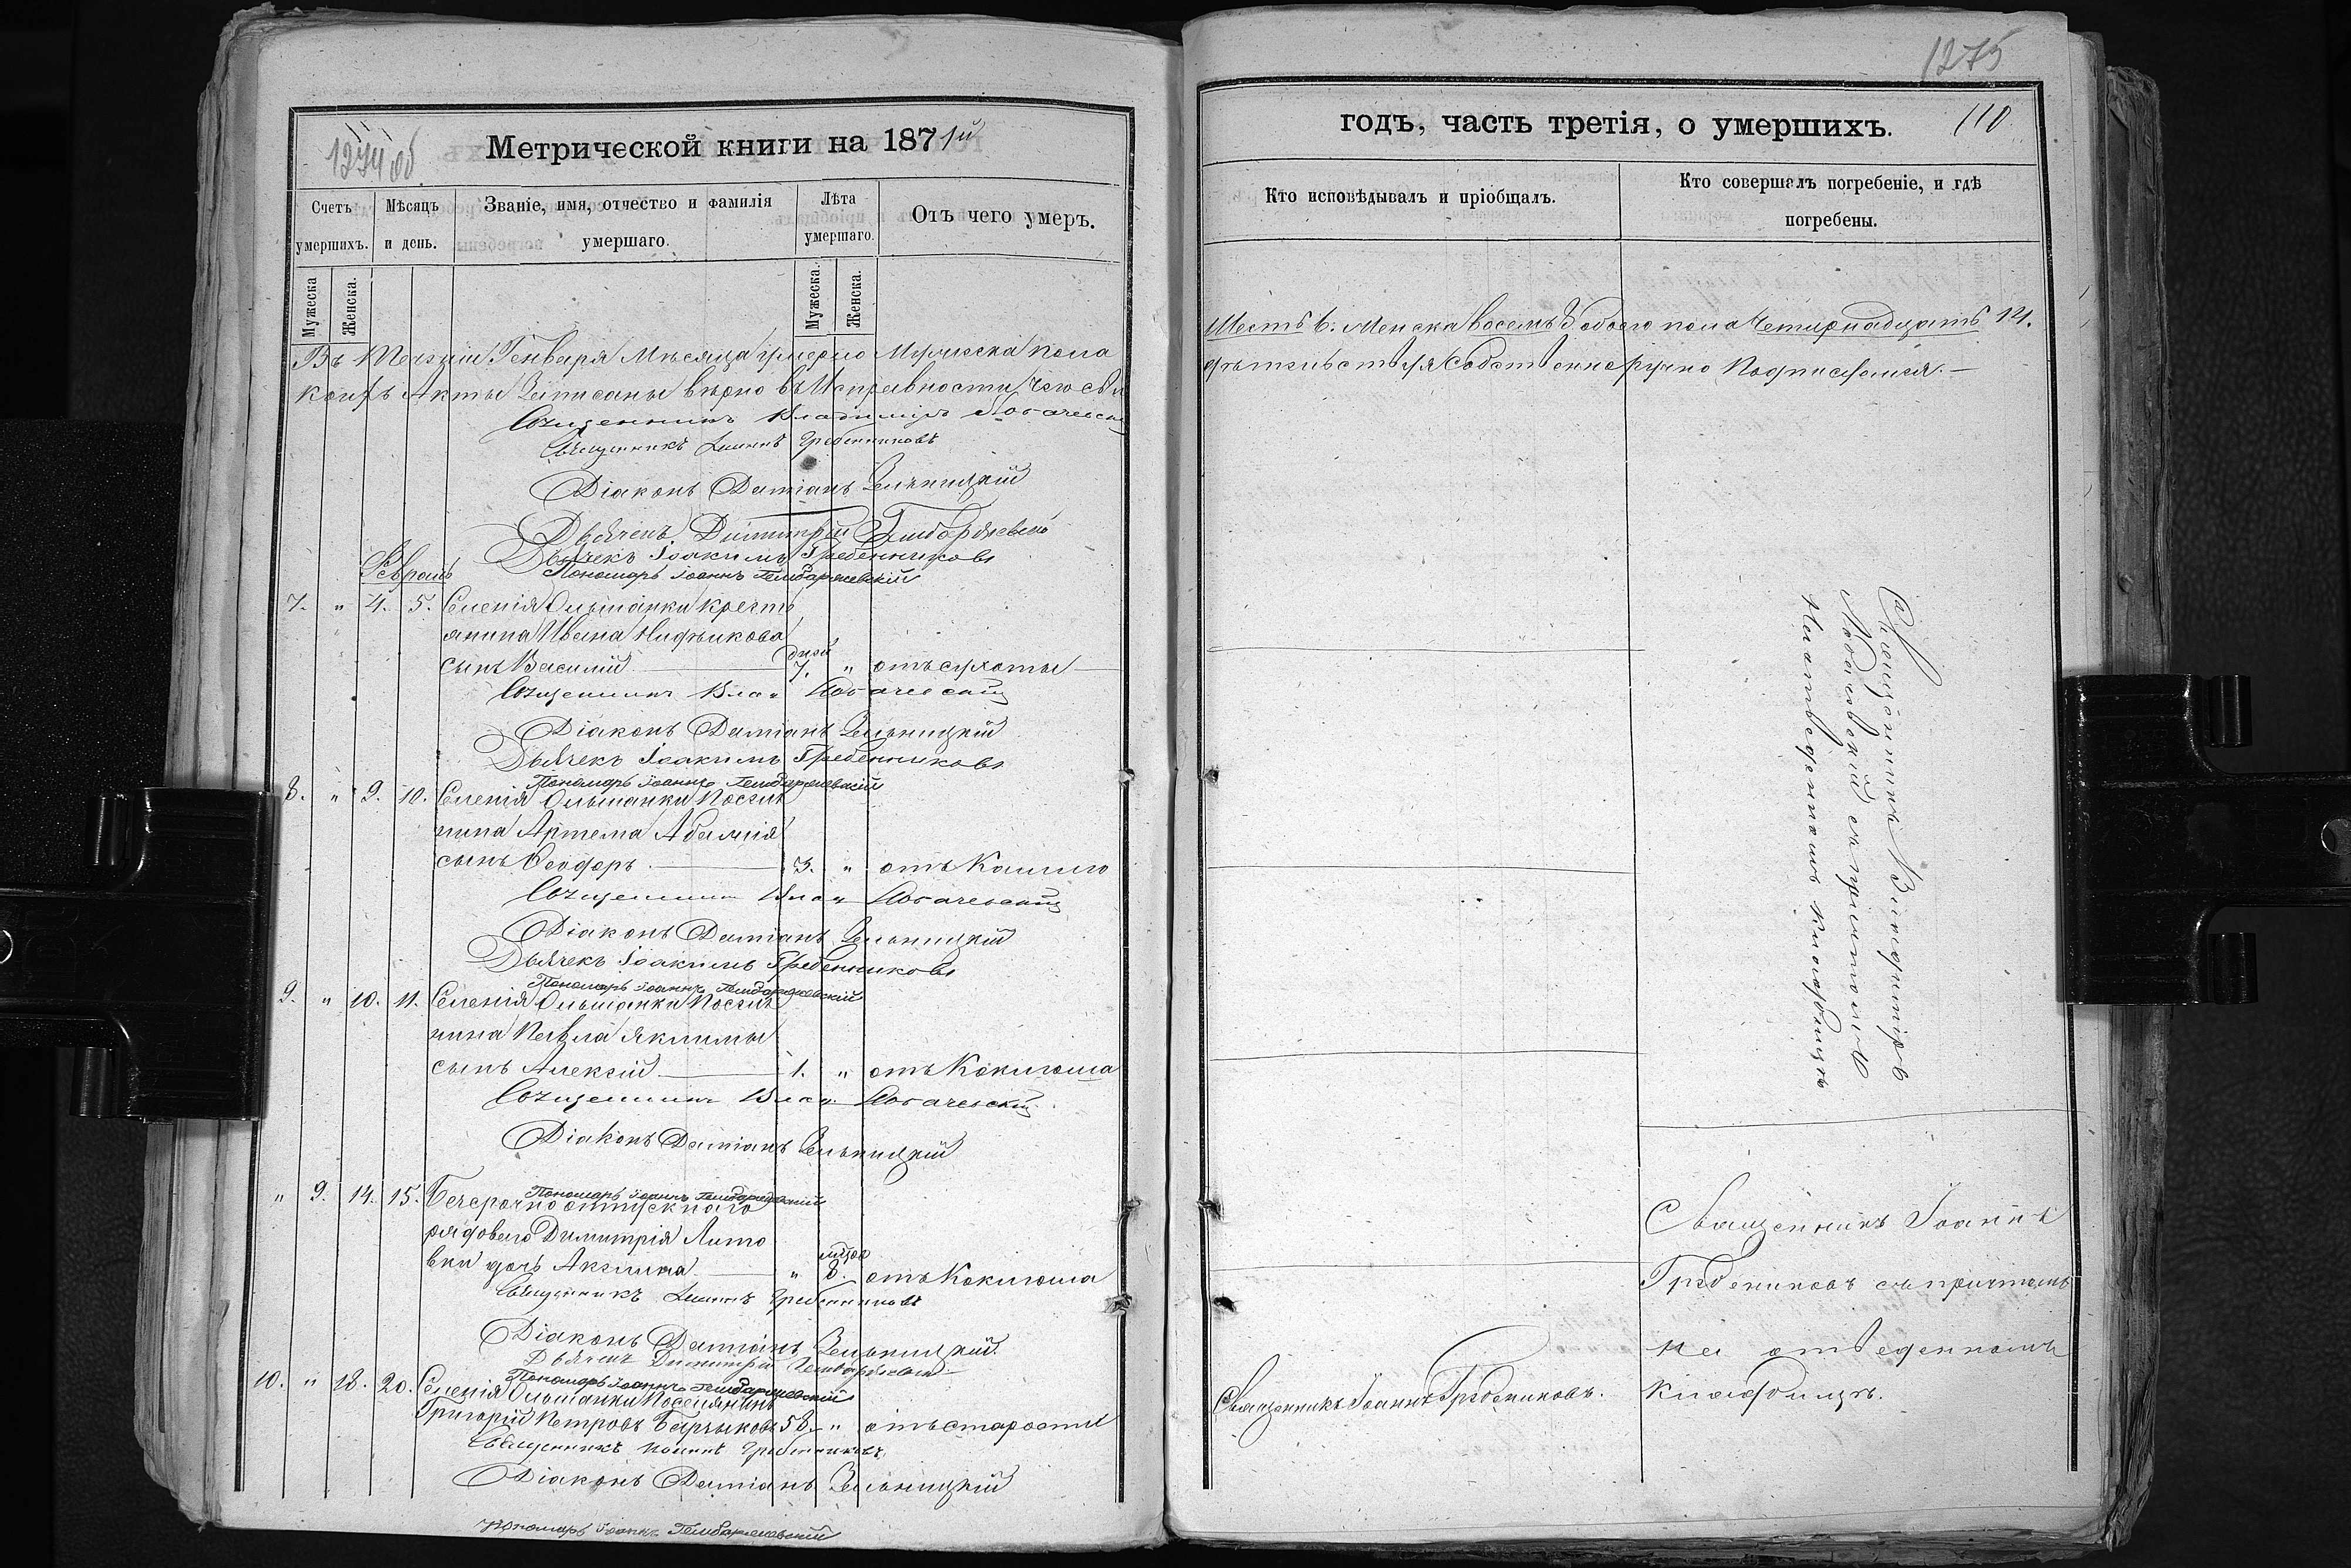 1274 об
Метрической книги на 1871й
Счетъ умершихъ.
Мѣсяцъ и день.
Званіе, имя, отчество и фамилія умершаго.
Лѣта умершаго.
Отъ чего умеръ.
Мужеска
Женска.
Мужеска.
Женска.
Въ теченіи Генваря мѣсяца умерло мужеска пола
коихъ акты записаны вѣрно въ исправности чего сви
Священникъ Владиміръ Логачевскій
Священникъ Іоаннъ Гребенниковъ
Діаконъ Даміанъ Зельницкій
Дьячекъ Димитрій
Дьячекъ Іоакимъ Гребенниковъ
Пономарь Іоаннъ
Февраль
7. " 4. 5. Селенія Ольшанки крестъ
янина Ивана
сынъ Василій дней 7. " отъ сухоты
Священникъ Влад Логачевскій
Діаконъ Даміанъ Зельницкій
Дьячекъ Іоакимъ Гребенниковъ
Пономарь Іоаннъ
8. " 9. 10. Селенія Ольшанки поселя
нина Артема
сынъ Ѳеодоръ 3. " отъ кашлю
Священникъ Влад Логачевскій
Діаконъ Даміанъ Зельницкій
Дьячекъ Іоакимъ Гребенниковъ
Пономарь Іоаннъ
9. " 10. 11. Селенія Ольшанки поселя
нина Павла Якимы
сынъ Алексій 1. " отъ коклюша
Священникъ Влад Логачевскій
Діаконъ Даміанъ Зельницкій
Пономарь Іоаннъ
" 9. 14. 15. Безсрочноотпускнаго
рядоваго Димитрія Лито
вки дочь Аксинья " мѣсяц 8. отъ коклюша
Священникъ Іоаннъ Гребенниковъ
Діаконъ Даміанъ Зельницкій
Дьячекъ Димитрій
Пономарь Іоаннъ
10. " 18. 20. Селенія Ольшанки поселянинъ
Григорій Петровъ 58. " отъ старости
Священникъ Іоаннъ Гребенниковъ
Діаконъ Даміанъ Зельницкій
Пономарь Іоаннъ
1275
годъ, часть третія, о умершихъ. 110
Кто исповѣдывалъ и пріобщалъ.
Кто совершалъ погребеніе, и гдѣ погребены.
Шесть 6. Женска восемь 8 обоего пола четырнадцать 14.
дѣтельствуя собственноручно подписуемся.
Священникъ Владиміръ
Логачевскій съ причтомъ
На отведенномъ кладбищѣ
Священникъ Іоаннъ
Гребениковъ съ причтомъ
на отведенномъ
кладбищѣ.
Священникъ Іоаннъ Гребениковъ.